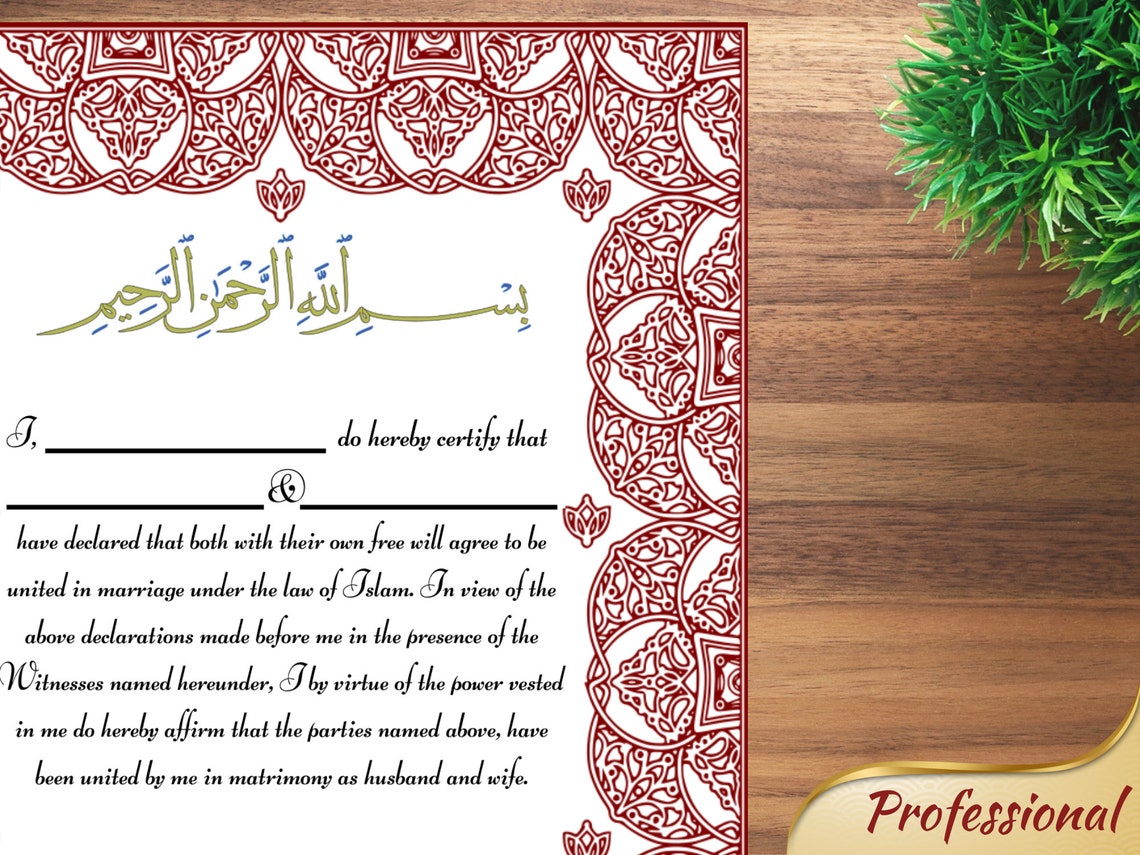 بِسْمِ ٱللَّهِ ٱلرَّحْمَٰنِ ٱلرَّحِيمِ
I, ____________________ do hereby certify that
____________________ & ____________________
have declared that both with their own free will agree to be
united in marriage under the law of Islam. In view of the
above declarations made before me in the presence of the
Witnesses named hereunder, I by virtue of the power vested
in me do hereby affirm that the parties named above, have
been united by me in matrimony as husband and wife.
Professional